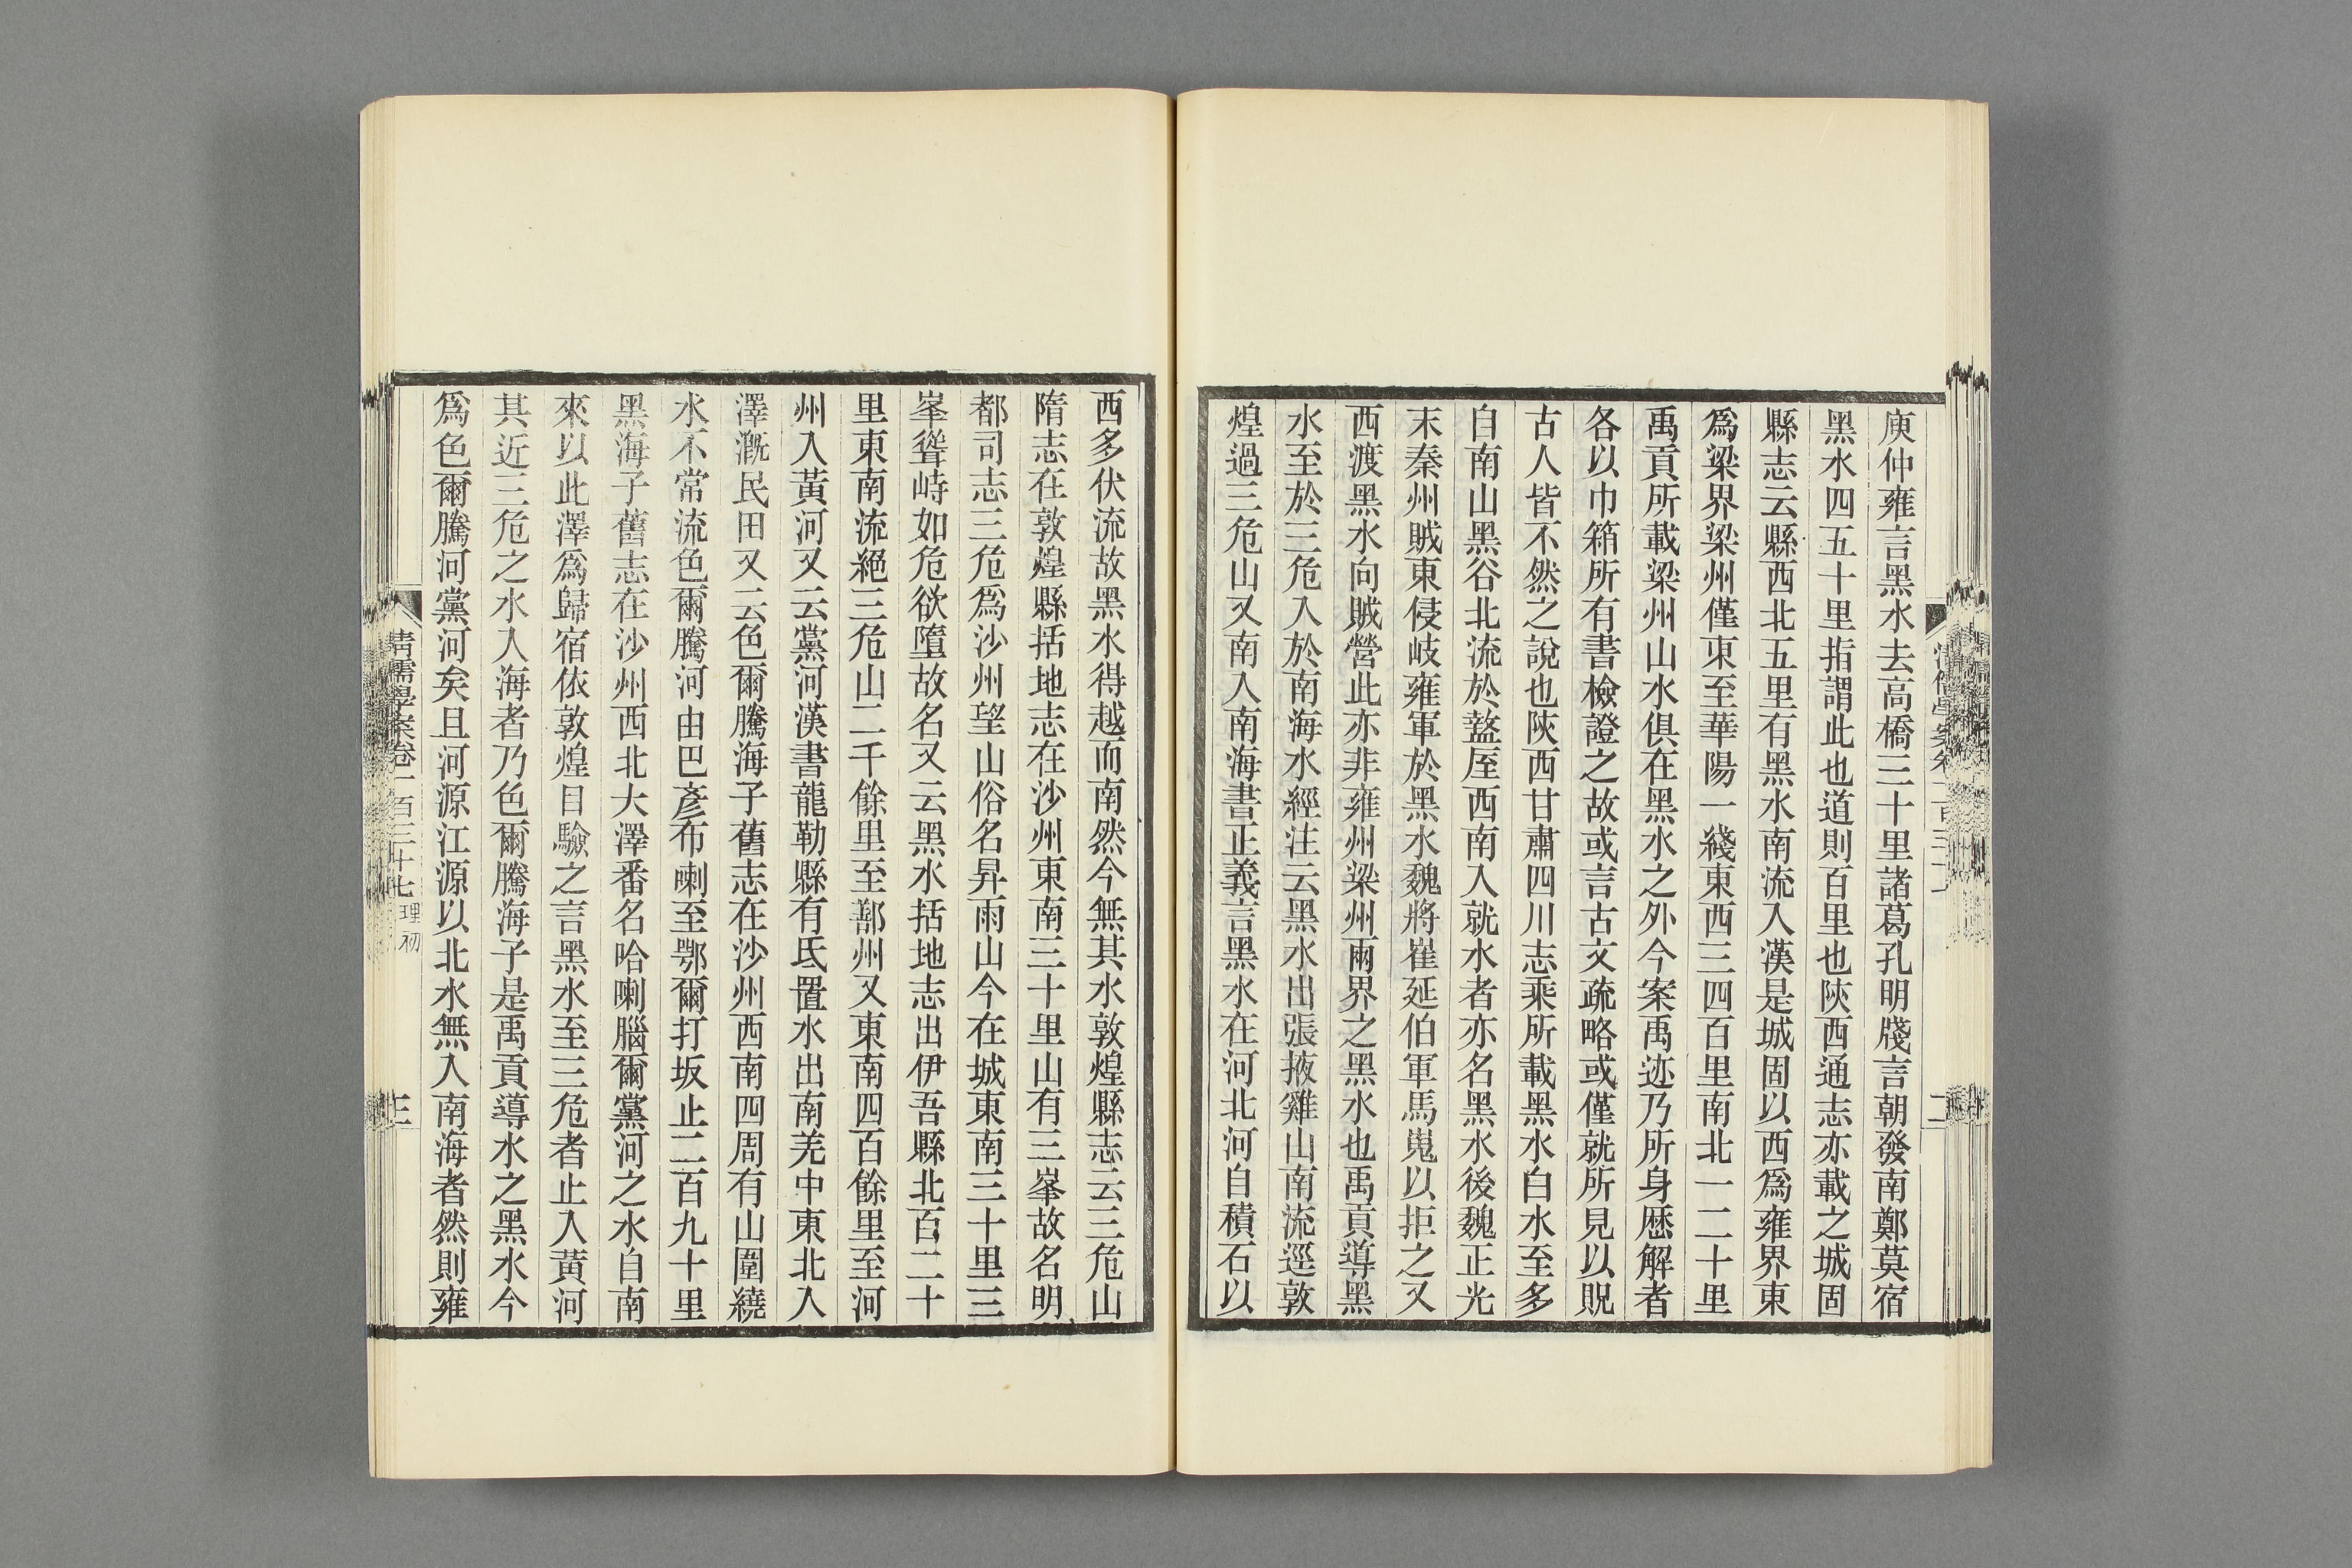 庾仲雍言黑水去高橋三十里諸葛孔明牋言朝發南鄭莫宿
黑水四五十里指謂此也道則百里也陝西通志亦載之城固
縣志云縣西北五里有黑水南流入漢是城固以西爲雍界東
爲梁界梁州僅東至華陽一綫東西三四百里南北一二十里
禹貢所載梁州山水俱在黑水之外今案禹迹乃所身歷解者
各以巾箱所有書檢證之故或言古文疏略或僅就所見以貺
古人皆不然之說也陝西甘肅四川志乘所載黑水白水至多
白南山黑谷北流於盩厔西南入就水者亦名黑水後魏正光
末秦州賊東侵岐雍軍於黑水魏將崔延伯軍馬嵬以拒之又
西渡黑水向賊營此亦非雍州梁州兩界之黑水也禹貢導黑
水至於三危入於南海水經注云黑水出張掖雞山南流逕敦
煌過三危山又南入南海書正義言黑水在河北河自積石以
西多伏流故黑水得越而南然今無其水敦煌縣志云三危山
隋志在敦煌縣括地志在沙州東南三十里山有三峯故名明
都司志三危爲沙州望山俗名昇雨山今在城東南三十里三
峯聳峙如危欲墮故名又云黑水括地志出伊吾縣北百二十
里東南流絕三危山二千餘里至鄯州又東南四百餘里至河
州入黃河又云黨河漢書龍勒縣有氐置水出南羌中東北入
澤溉民田又云色爾騰海子舊志在沙州西南四周有山圍繞
水不常流色爾騰河由巴彥布喇至鄂爾打坂止二百九十里
黑海子舊志在沙州西北大澤番名哈喇腦爾黨河之水自南
來以此澤爲歸宿依敦煌目驗之言黑水至三危者止入黃河
其近三危之水入海者乃色爾騰海子是禹貢導水之黑水今
爲色爾騰河黨河矣且河源江源以北水無入南海者然則雍
清儒學案卷一百三十七 理初
三